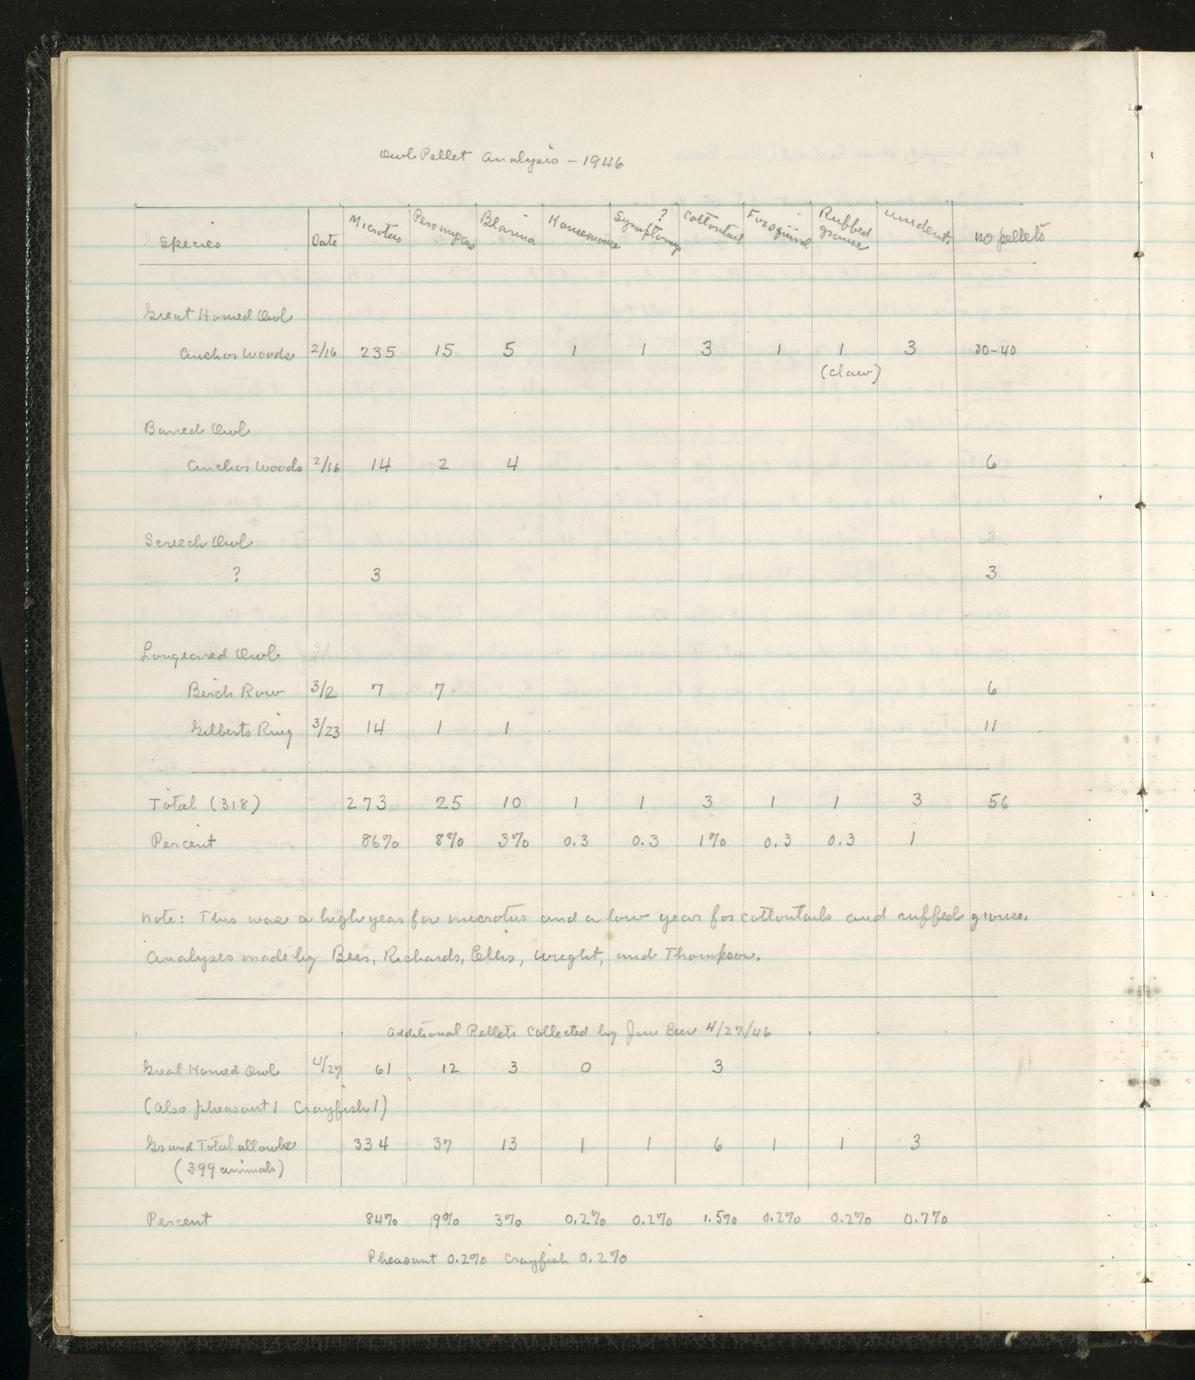 Owl Pellet Analysis – 1946
Species Date Microtus Peromyscus Blarina Housemouse Synaptomys ? Cottontail Fox squirrel Ruffed grouse unident. no pellets
Great Horned Owl
Anchor Woods 2/16 235 15 5 1 1 3 1 1 3 30-40
(claw)
Barred Owl
Anchor Woods 2/16 14 2 4 6
Screech Owl
? 3 3
Longeared Owl
Birch Row 3/2 7 7 6
Gilberts Ring 3/23 14 1 1 11
Total (318) 273 25 10 1 1 3 1 1 3 56
Percent 86% 8% 3% 0.3 0.3 1% 0.3 0.3 1
Note: This was a high year for microtus and a low year for cottontails and ruffed grouse.
Analyses made by Beer, Richards, Ellis, Wright, and Thompson.
Additional Pellets Collected by Jim Beer 4/27/46
Great Horned Owl 4/27 61 12 3 0 3
(also pheasant 1 Crayfish 1)
Grand Total all owls 334 37 13 1 1 6 1 1 3
(399 animals)
Percent 84% 9% 3% 0.2% 0.2% 1.5% 0.2% 0.2% 0.7%
Pheasant 0.2% Crayfish 0.2%